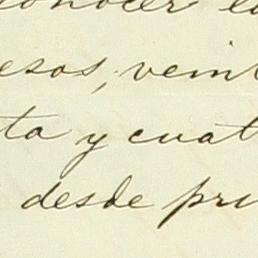 conocer la
esos, veint
ta y cuat
desde pri